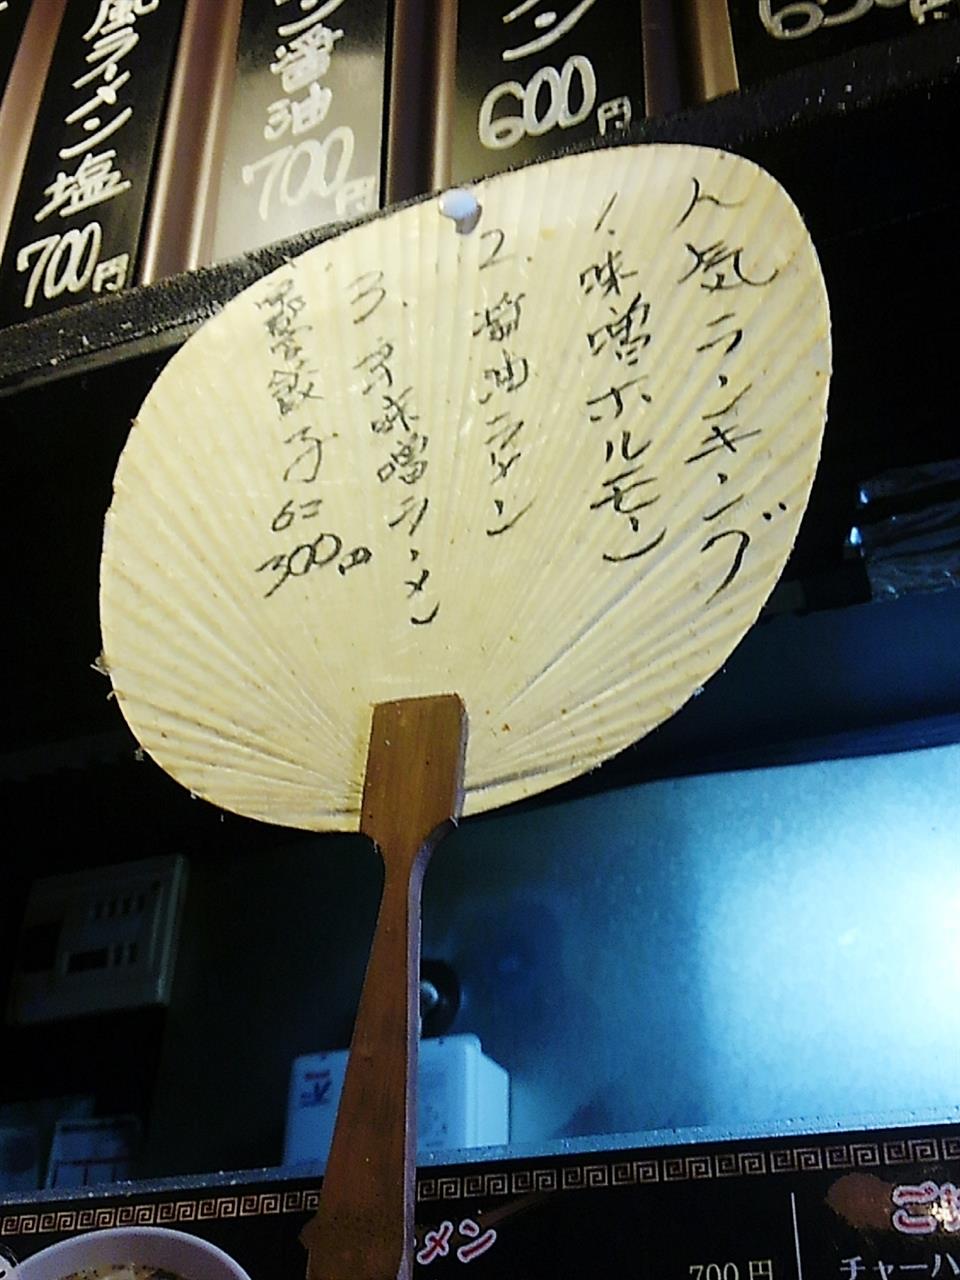 風ラーメン塩
700円
ン醤油
700円
ン
600円
650円
人気ランキング
1.味噌ホルモン
2.醤油ラーメン
3.辛味噌ラーメン
餃子6コ
300円
メン
700円
チャーハ